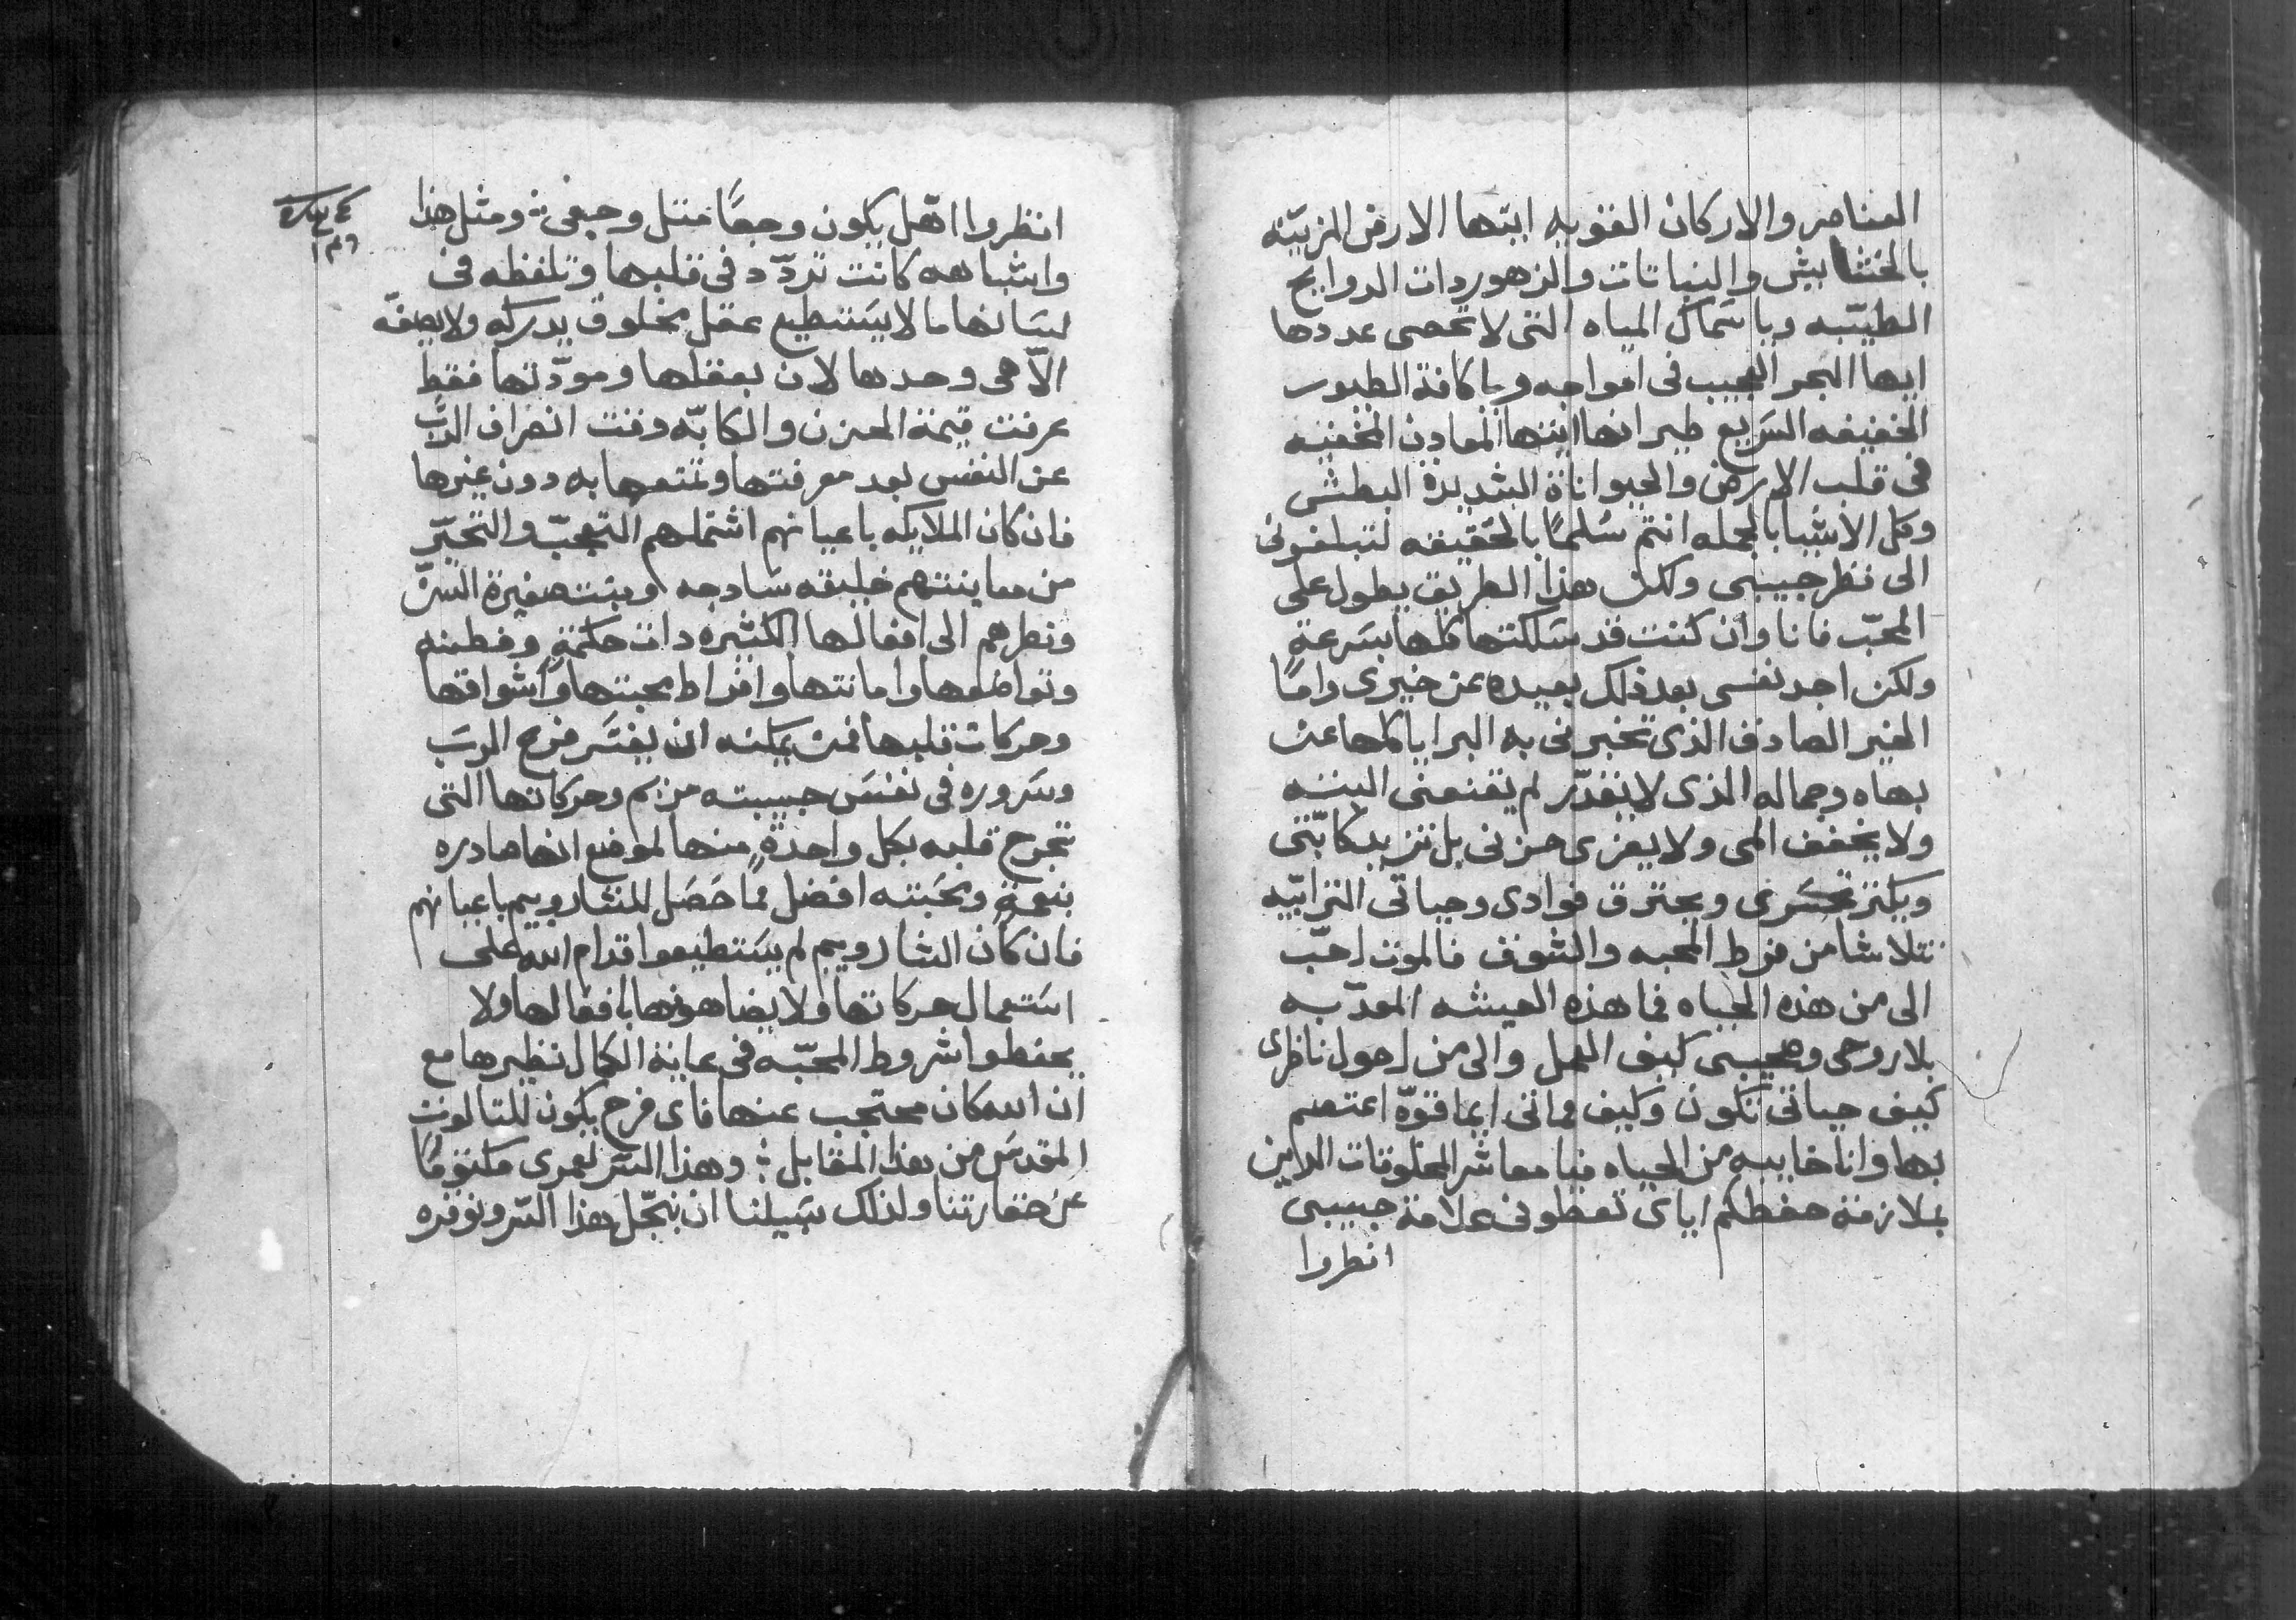 العناصر والاركان القويه ايتها الارض المزيّنه
بالحشايش والنباتات والزهور ذات الروايح
الطيّبه ويا سَماك المياه التى لا تحصى عددها
ايها البحر العجيب فى امواجه ويا كافة الطيور
الخفيفه السَريع طيرانها ايتها المعادن المخفيه
فى قلب الارض والحيواناة الشديدة البطش
وكل الاشيا بالجمله انتم سُلمًا بالحقيقه لتبلغونى
الى نظر حبيبى ولكن هذا الطريق يطول على
المحبّ فانا وان كنت قد سَلكتها كلها بسَرعةٍ
ولكن اجد نفسى بعد ذلك بعيده عن خيرى وامًا
الخبر الصادق الذى تخبرنى به البرايا كلها عن
بهاه وجماله الذى لا يتقدّر لم يقنعنى البتّه
ولا يخفف المى ولا يعزى حزنى بل تزيد كابّتى
ويكتر تحسَرى ويحترق فوادى وحياتى الترابيّه
تتلاشا من فرط المحبه والشوق فالموت احبّ
الى من هذه الحياه فما هذه العيشه المعدّبه
بلا روحى وحبيبى كيف العمل والى من احول ناظرى
كيف حياتى تكون وكيف مماتى ايما قوّه اعتصم
بها وانا خايبه من الحياه فيا معاشر المخلوقات الداين
بملازمة حفظكم اياى تعطونى علامة حبيبى
انظروا
انظروا اهل يكون وجعًا مثل وجعى ܀ ومثل هذا
واشباهه كانت تردّد فى قلبها وتلفظه فى
لسَانها ما لا يسَتطيع عقل مخلوق يدركه ولا يصفه
الاّ هى وحدها لان بعقلها ومودّتها فقط
عرفت قيمة الحزن والكابّه وقت انصراف الربّ
عن النفس بعد معرفتها وتمتعها به دون غيرها
فان كان الملايكه باعيانهم اشتملهم التعجبّ والتحيّر
من معاينتهم خليقه سَادجه وبنت صغيرة السَنّ
ونظرهم الى افعالها الكثيره دات حكمةٍ وفطنه
وتواضعها وامانتها وافراط محبتها واشواقها
وحركات قلبها فمن يمكنه ان يفسَر فرح الربَ
وسَروره فى نفسَ حبيبته مريم وحركاتها التى
تجرح قلبه بكل واحدةٍ منها لموضع انها صادره
بنعمةٍ ومحَبته افضل ممّا حَصَل للشاروبيم باعيانهم
فان كان الشاروبيم لم يسَتطيعوا قدام الله على
اسَتعمال حركاتها ولا يضاهونها بافعالها ولا
يحفظوا شروط المحبّه فى غاية الكمال نظيرها مع
ان الله كان محتجب عنها فاى فرح يكون للتالوت
المقدسَ من هذا المقابل ܀ وهذا السَر لعمرى مكتومًا
عن حقارتنا ولذلك سَبيلنا ان نبجّل هذا السَر ونوقره